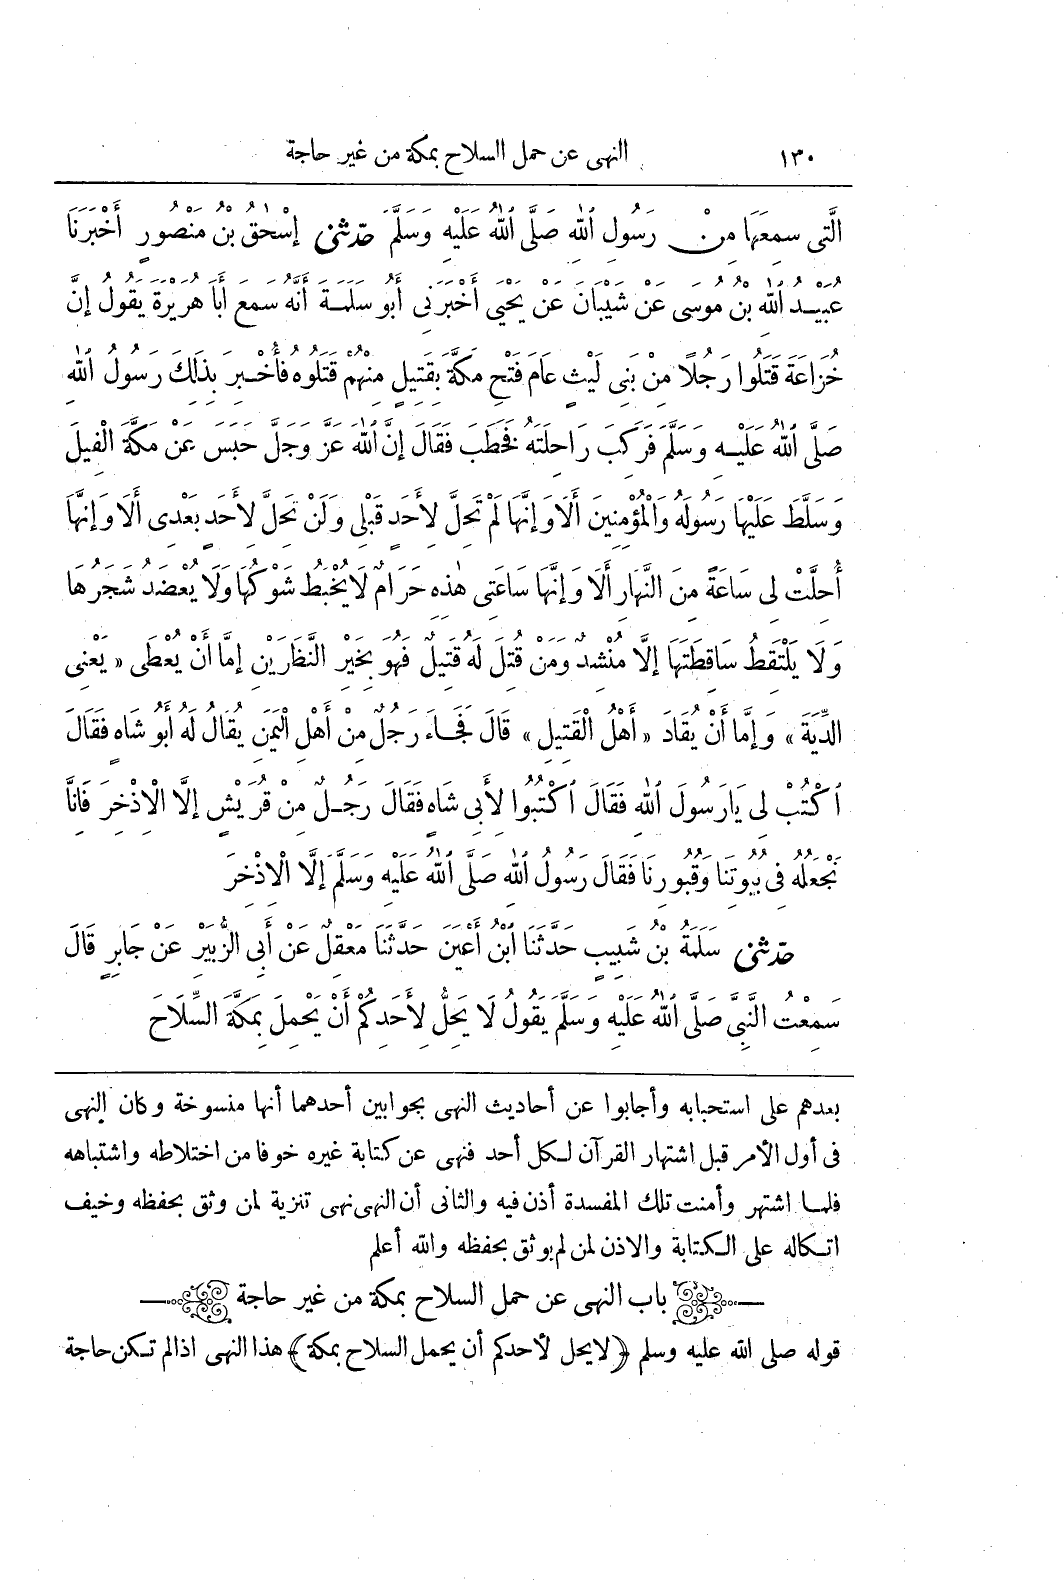 ١٣٠ النهى عن حمل السلاح بمكة من غير حاجة
الَّتِى سَمِعَهَا مِنْ رَسُولِ اللّٰهِ صَلَّى اللّٰهُ عَلَيْهِ وَسَلَّمَ حَدَّثَنِى إِسْحٰقُ بْنُ مَنْصُورٍ أَخْبَرَنَا
عُبَيْدُ اللّٰهِ بْنُ مُوسَى عَنْ شَيْبَانَ عَنْ يَحْيَى أَخْبَرَنِى أَبُو سَلَمَةَ أَنَّهُ سَمِعَ أَبَا هُرَيْرَةَ يَقُولُ إِنَّ
خُزَاعَةَ قَتَلُوا رَجُلًا مِنْ بَنِى لَيْثٍ عَامَ فَتْحِ مَكَّةَ بِقَتِيلٍ مِنْهُمْ قَتَلُوهُ فَأُخْبِرَ بِذٰلِكَ رَسُولُ اللّٰهِ
صَلَّى اللّٰهُ عَلَيْهِ وَسَلَّمَ فَرَكِبَ رَاحِلَتَهُ فَخَطَبَ فَقَالَ إِنَّ اللّٰهَ عَزَّ وَجَلَّ حَبَسَ عَنْ مَكَّةَ الْفِيلَ
وَسَلَّطَ عَلَيْهَا رَسُولَهُ وَالْمُؤْمِنِينَ أَلَا وَإِنَّهَا لَمْ تَحِلَّ لِأَحَدٍ قَبْلِى وَلَنْ تَحِلَّ لِأَحَدٍ بَعْدِى أَلَا وَإِنَّهَا
أُحِلَّتْ لِى سَاعَةً مِنَ النَّهَارِ أَلَا وَإِنَّهَا سَاعَتِى هٰذِهِ حَرَامٌ لَا يُخْبَطُ شَوْكُهَا وَلَا يُعْضَدُ شَجَرُهَا
وَلَا يَلْتَقِطُ سَاقِطَتَهَا إِلَّا مُنْشِدٌ وَمَنْ قُتِلَ لَهُ قَتِيلٌ فَهُوَ بِخَيْرِ النَّظَرَيْنِ إِمَّا أَنْ يُعْطَى «يَعْنِى
الدِّيَةَ» وَإِمَّا أَنْ يُقَادَ «أَهْلُ الْقَتِيلِ» قَالَ فَجَاءَ رَجُلٌ مِنْ أَهْلِ الْيَمَنِ يُقَالُ لَهُ أَبُو شَاهٍ فَقَالَ
اكْتُبْ لِى يَا رَسُولَ اللّٰهِ فَقَالَ اكْتُبُوا لِأَبِى شَاهٍ فَقَالَ رَجُلٌ مِنْ قُرَيْشٍ إِلَّا الْإِذْخِرَ فَإِنَّا
نَجْعَلُهُ فِى بُيُوتِنَا وَقُبُورِنَا فَقَالَ رَسُولُ اللّٰهِ صَلَّى اللّٰهُ عَلَيْهِ وَسَلَّمَ إِلَّا الْإِذْخِرَ
حَدَّثَنِى سَلَمَةُ بْنُ شَبِيبٍ حَدَّثَنَا ابْنُ أَعْيَنَ حَدَّثَنَا مَعْقِلٌ عَنْ أَبِى الزُّبَيْرِ عَنْ جَابِرٍ قَالَ
سَمِعْتُ النَّبِىَّ صَلَّى اللّٰهُ عَلَيْهِ وَسَلَّمَ يَقُولُ لَا يَحِلُّ لِأَحَدِكُمْ أَنْ يَحْمِلَ بِمَكَّةَ السِّلَاحَ
بعدهم على استحبابه وأجابوا عن أحاديث النهى بجوابين أحدهما أنها منسوخة وكان النهى
فى أول الأمر قبل اشتهار القرآن لكل أحد فنهى عن كتابة غيره خوفا من اختلاطه واشتباهه
فلما اشتهر وأمنت تلك المفسدة أذن فيه والثانى أن النهى نهى تنزية لمن وثق بحفظه وخيف
اتكاله على الكتابة والاذن لمن لم يوثق بحفظه والله أعلم
باب النهى عن حمل السلاح بمكة من غير حاجة
قوله صلى الله عليه وسلم ﴿لا يحل لأحدكم أن يحمل السلاح بمكة﴾ هذا النهى اذا لم تكن حاجة